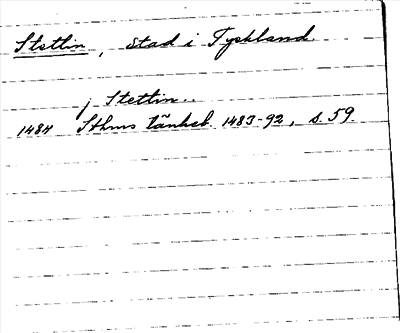 Stettin, stad i Tyskland.
j Stettin..
1484 Sthms tänkeb. 1483-92, s. 59.